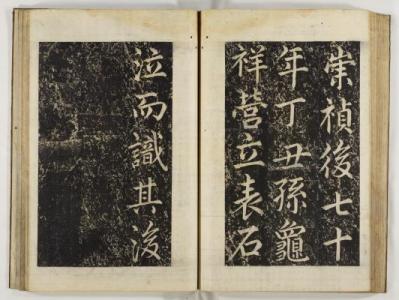 崇禎後七十
年丁丑孫龜
祥營立表石
泣而識其後